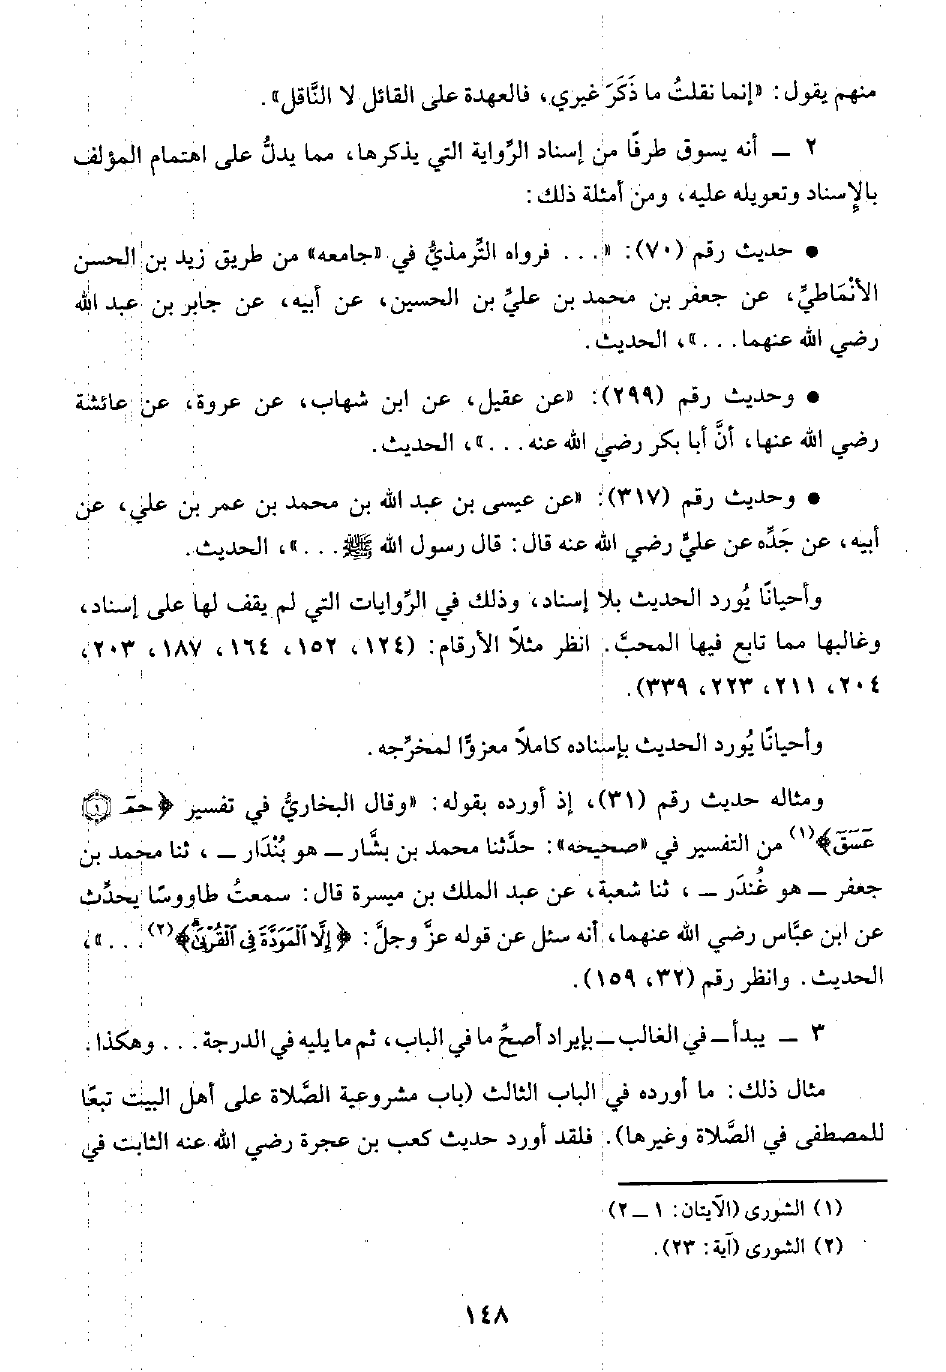 منهم يقول: «إنما نقلتُ ما ذَكَرَ غيري، فالعهدة على القائل لا النَّاقل».
٢ ــ أنه يسوق طرفًا من إسناد الرِّواية التي يذكرها، مما يدلُّ على اهتمام المؤلف
بالإسناد وتعويله عليه، ومن أمثلة ذلك:
● حديث رقم (٧٠): «... فرواه التِّرمذيُّ في «جامعه» من طريق زيد بن الحسن
الأنْماطيِّ، عن جعفر بن محمد بن عليِّ بن الحسين، عن أبيه، عن جابر بن عبد الله
رضي الله عنهما...»، الحديث.
● وحديث رقم (٢٩٩): «عن عقيل، عن ابن شهاب، عن عروة، عن عائشة
رضي الله عنها، أنَّ أبا بكر رضي الله عنه...»، الحديث.
● وحديث رقم (٣١٧): «عن عيسى بن عبد الله بن محمد بن عمر بن علي، عن
أبيه، عن جَدِّه عن عليٍّ رضي الله عنه قال: قال رسول الله ﷺ...»، الحديث.
وأحيانًا يُورد الحديث بلا إسناد، وذلك في الرِّوايات التي لم يقف لها على إسناد،
وغالبها مما تابع فيها المحبَّ. انظر مثلاً الأرقام: (١٢٤، ١٥٢، ١٦٤، ١٨٧، ٢٠٣،
٢٠٤، ٢١١، ٢٢٣، ٣٣٩).
وأحيانًا يُورد الحديث بإسناده كاملاً معزوًّا لمخرِّجه.
ومثاله حديث رقم (٣١)، إذ أورده بقوله: «وقال البخاريُّ في تفسير ﴿حمٓ ۝١
عٓسٓقٓ﴾(١) من التفسير في «صحيحه»: حدَّثنا محمد بن بشَّار ــ هو بُنْدَار ــ، ثنا محمد بن
جعفر ــ هو غُندَر ــ، ثنا شعبة، عن عبد الملك بن ميسرة قال: سمعتُ طاووسًا يحدِّث
عن ابن عبَّاس رضي الله عنهما، أنه سئل عن قوله عزَّ وجلَّ: ﴿إِلَّا ٱلْمَوَدَّةَ فِى ٱلْقُرْبَىٰ﴾(٢)...»،
الحديث. وانظر رقم (٣٢، ١٥٩).
٣ ــ يبدأ ــ في الغالب ــ بإيراد أصحِّ ما في الباب، ثم ما يليه في الدرجة... وهكذا.
مثال ذلك: ما أورده في الباب الثالث (باب مشروعية الصَّلاة على أهل البيت تبعًا
للمصطفى في الصَّلاة وغيرها). فلقد أورد حديث كعب بن عجرة رضي الله عنه الثابت في
(١) الشورى (الآيتان: ١ ــ ٢)
(٢) الشورى (آية: ٢٣).
١٤٨